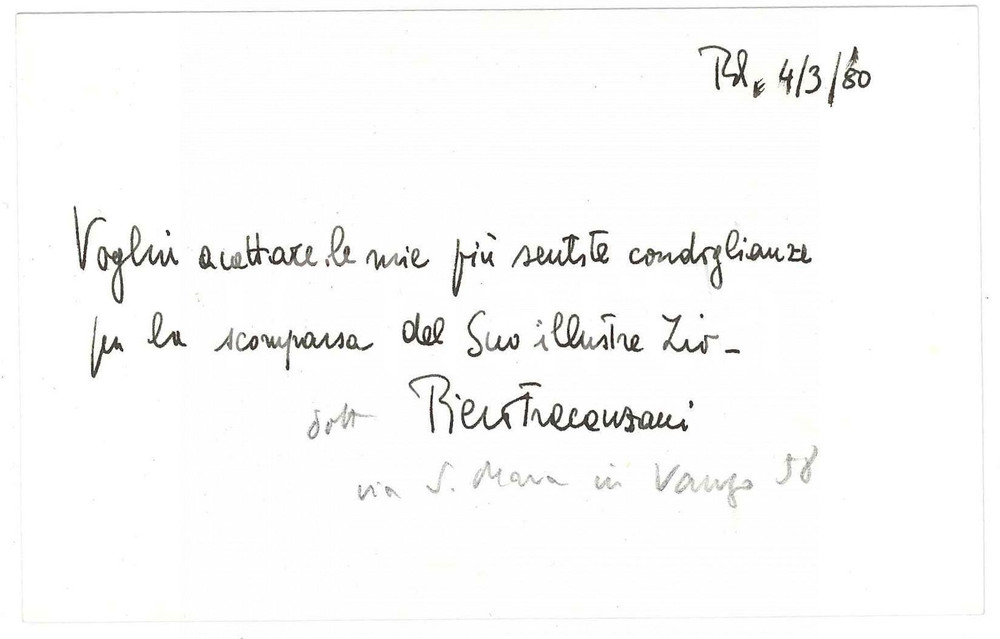 Pd, 4/3/80
Voglia accettare le mie più sentite condoglianze
per la scomparsa del Suo illustre Zio -
dott Piero Fracanzani
via S. Maria in Vanzo 58